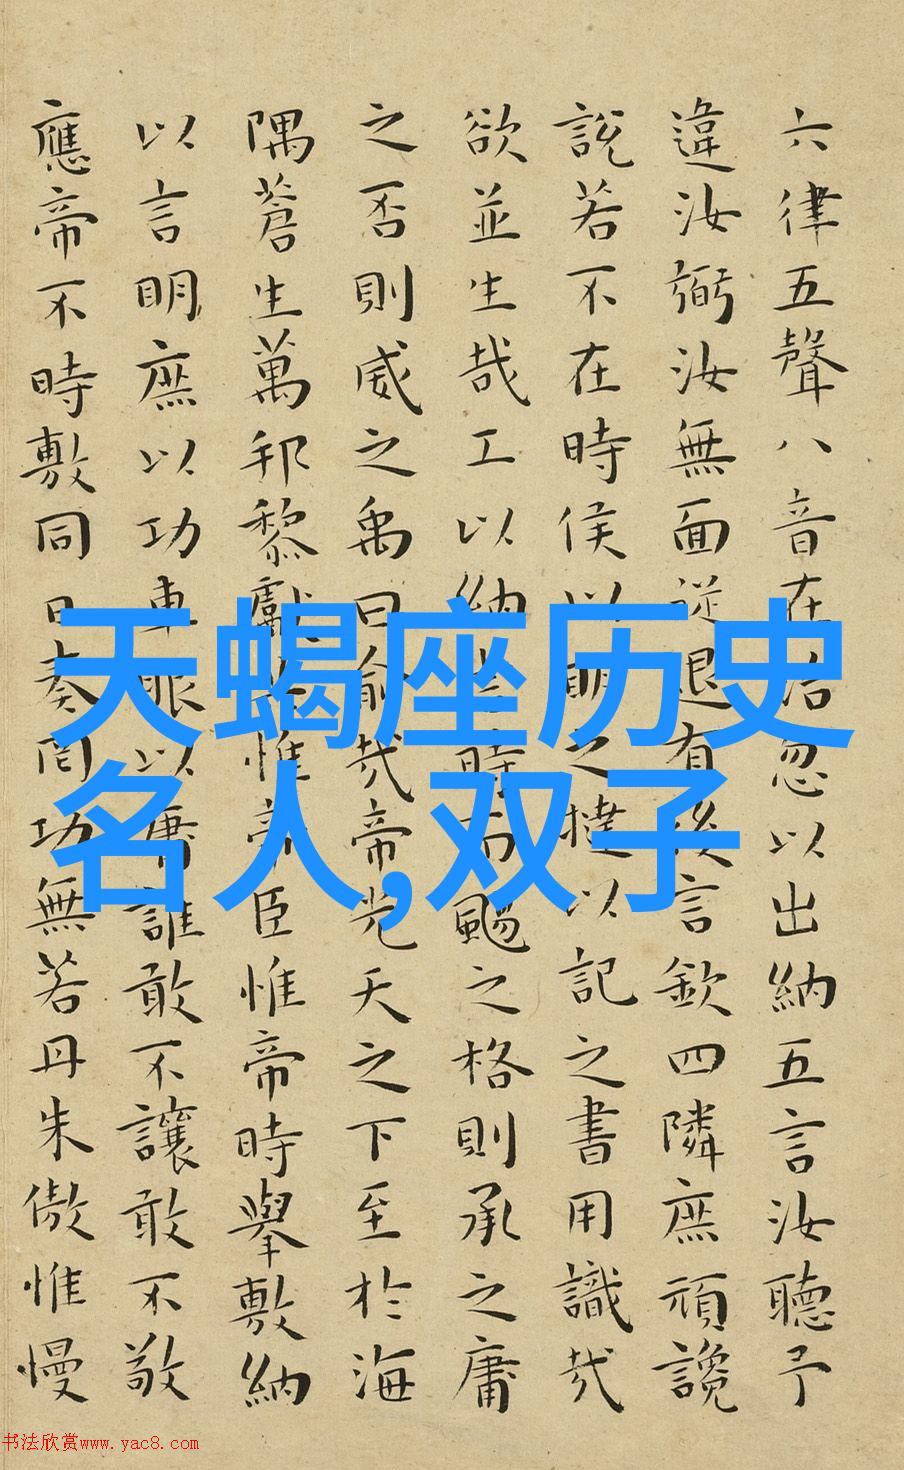 六律五聲八音在治忽以出納五言汝聽予
違汝弼汝無面從退有後言欽四隣庶頑讒
說若不在時侯以明之撻以記之書用識哉
欲並生哉工以納言時而颺之格則承之庸
之否則威之禹曰俞哉帝光天之下至於海
隅蒼生萬邦黎獻共惟帝臣惟帝時舉敷納
以言明庶以功車服以庸誰敢不讓敢不敬
應帝不時敷同日奏罔功無若丹朱傲惟慢
天蝎座历史
名人,双子
书法欣赏www.yac8.com